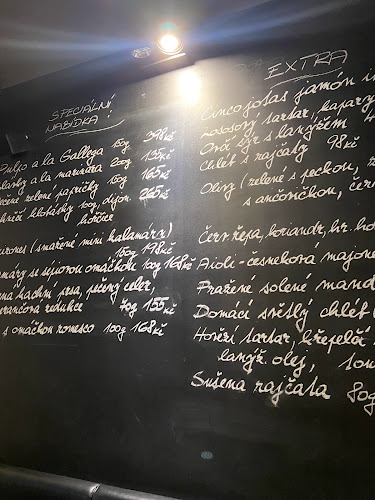 SPECIÁLNÍ
NABÍDKA
Pulpo a la Gallega 150g 398Kč
a la marinara 200g 135Kč
zelené papričky 150g 165Kč
klobásky 100g, dijon. 265Kč
hořčice
(smažené mini kalamáry)
150g 198Kč
se sépiovou omáčkou 100g 168Kč
kachní prsa, pečený celer,
redukce 70g 155Kč
s omáčkou romesco 100g 168Kč
EXTRA
Cinco jotas jamón
Lososový tartar, kapary
Ovčí sýr s lanýžem
chléb s rajčaty 98Kč
Olivy (zelené s peckou,
s ančovičkou,
Červ. řepa, koriandr,
Aioli - česneková
Pražené solené
Domácí světlý chléb
Hovězí tartar, křepelčí
lanýž. olej,
Sušená rajčata 80g